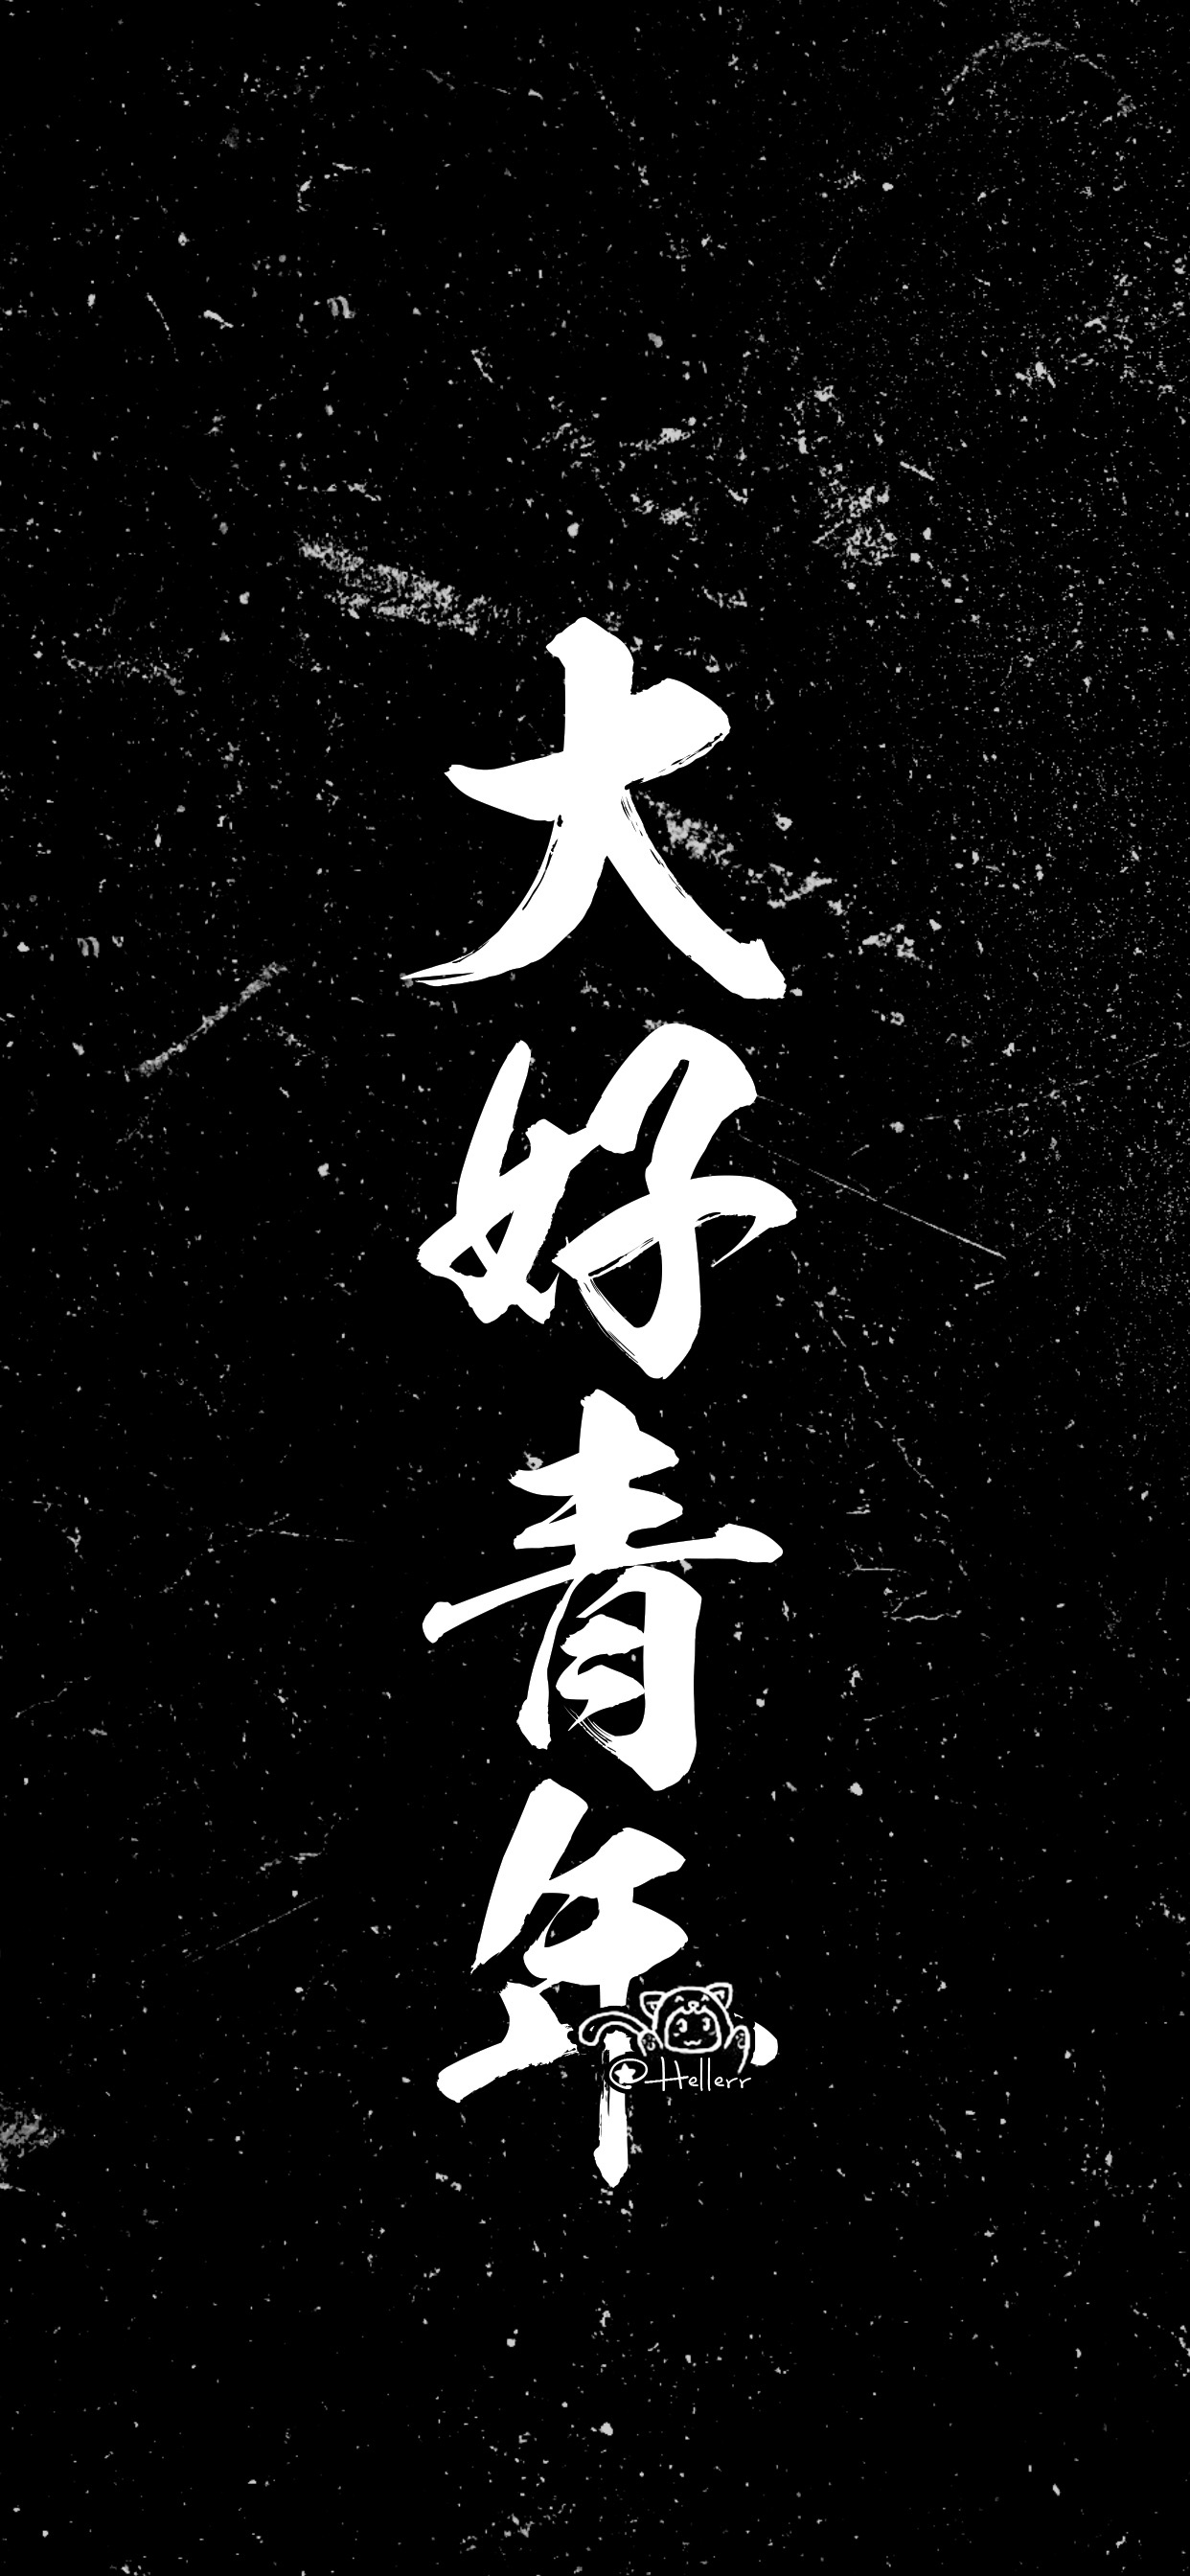 大好青年
@Hellerr